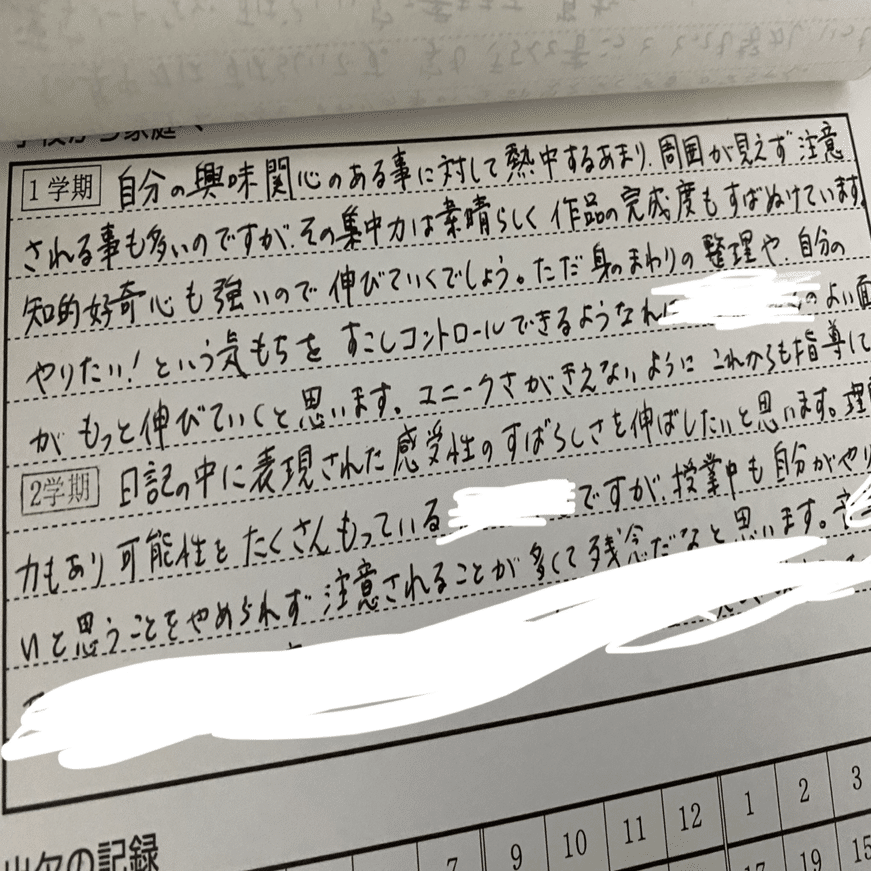 学校から家庭へ
1学期 自分の興味関心のある事に対して熱中するあまり、周囲が見えず注意
される事も多いのですが、その集中力は素晴らしく作品の完成度もすばぬけています。
知的好奇心も強いので伸びていくでしょう。ただ身のまわりの整理や、自分の
やりたい！という気もちをすこしコントロールできるようなれば のよい面
がもっと伸びていくと思います。ユニークさがきえないようにこれからも指導して
2学期 日記の中に表現された感受性のすばらしさを伸ばしたいと思います。理解
力もあり可能性をたくさんもっている ですが、授業中も自分がやり
いと思うことをやめられず注意されることが多くて残念だなと思います。
出欠の記録
7 9 10 11 12 1 2 3
17 19 15